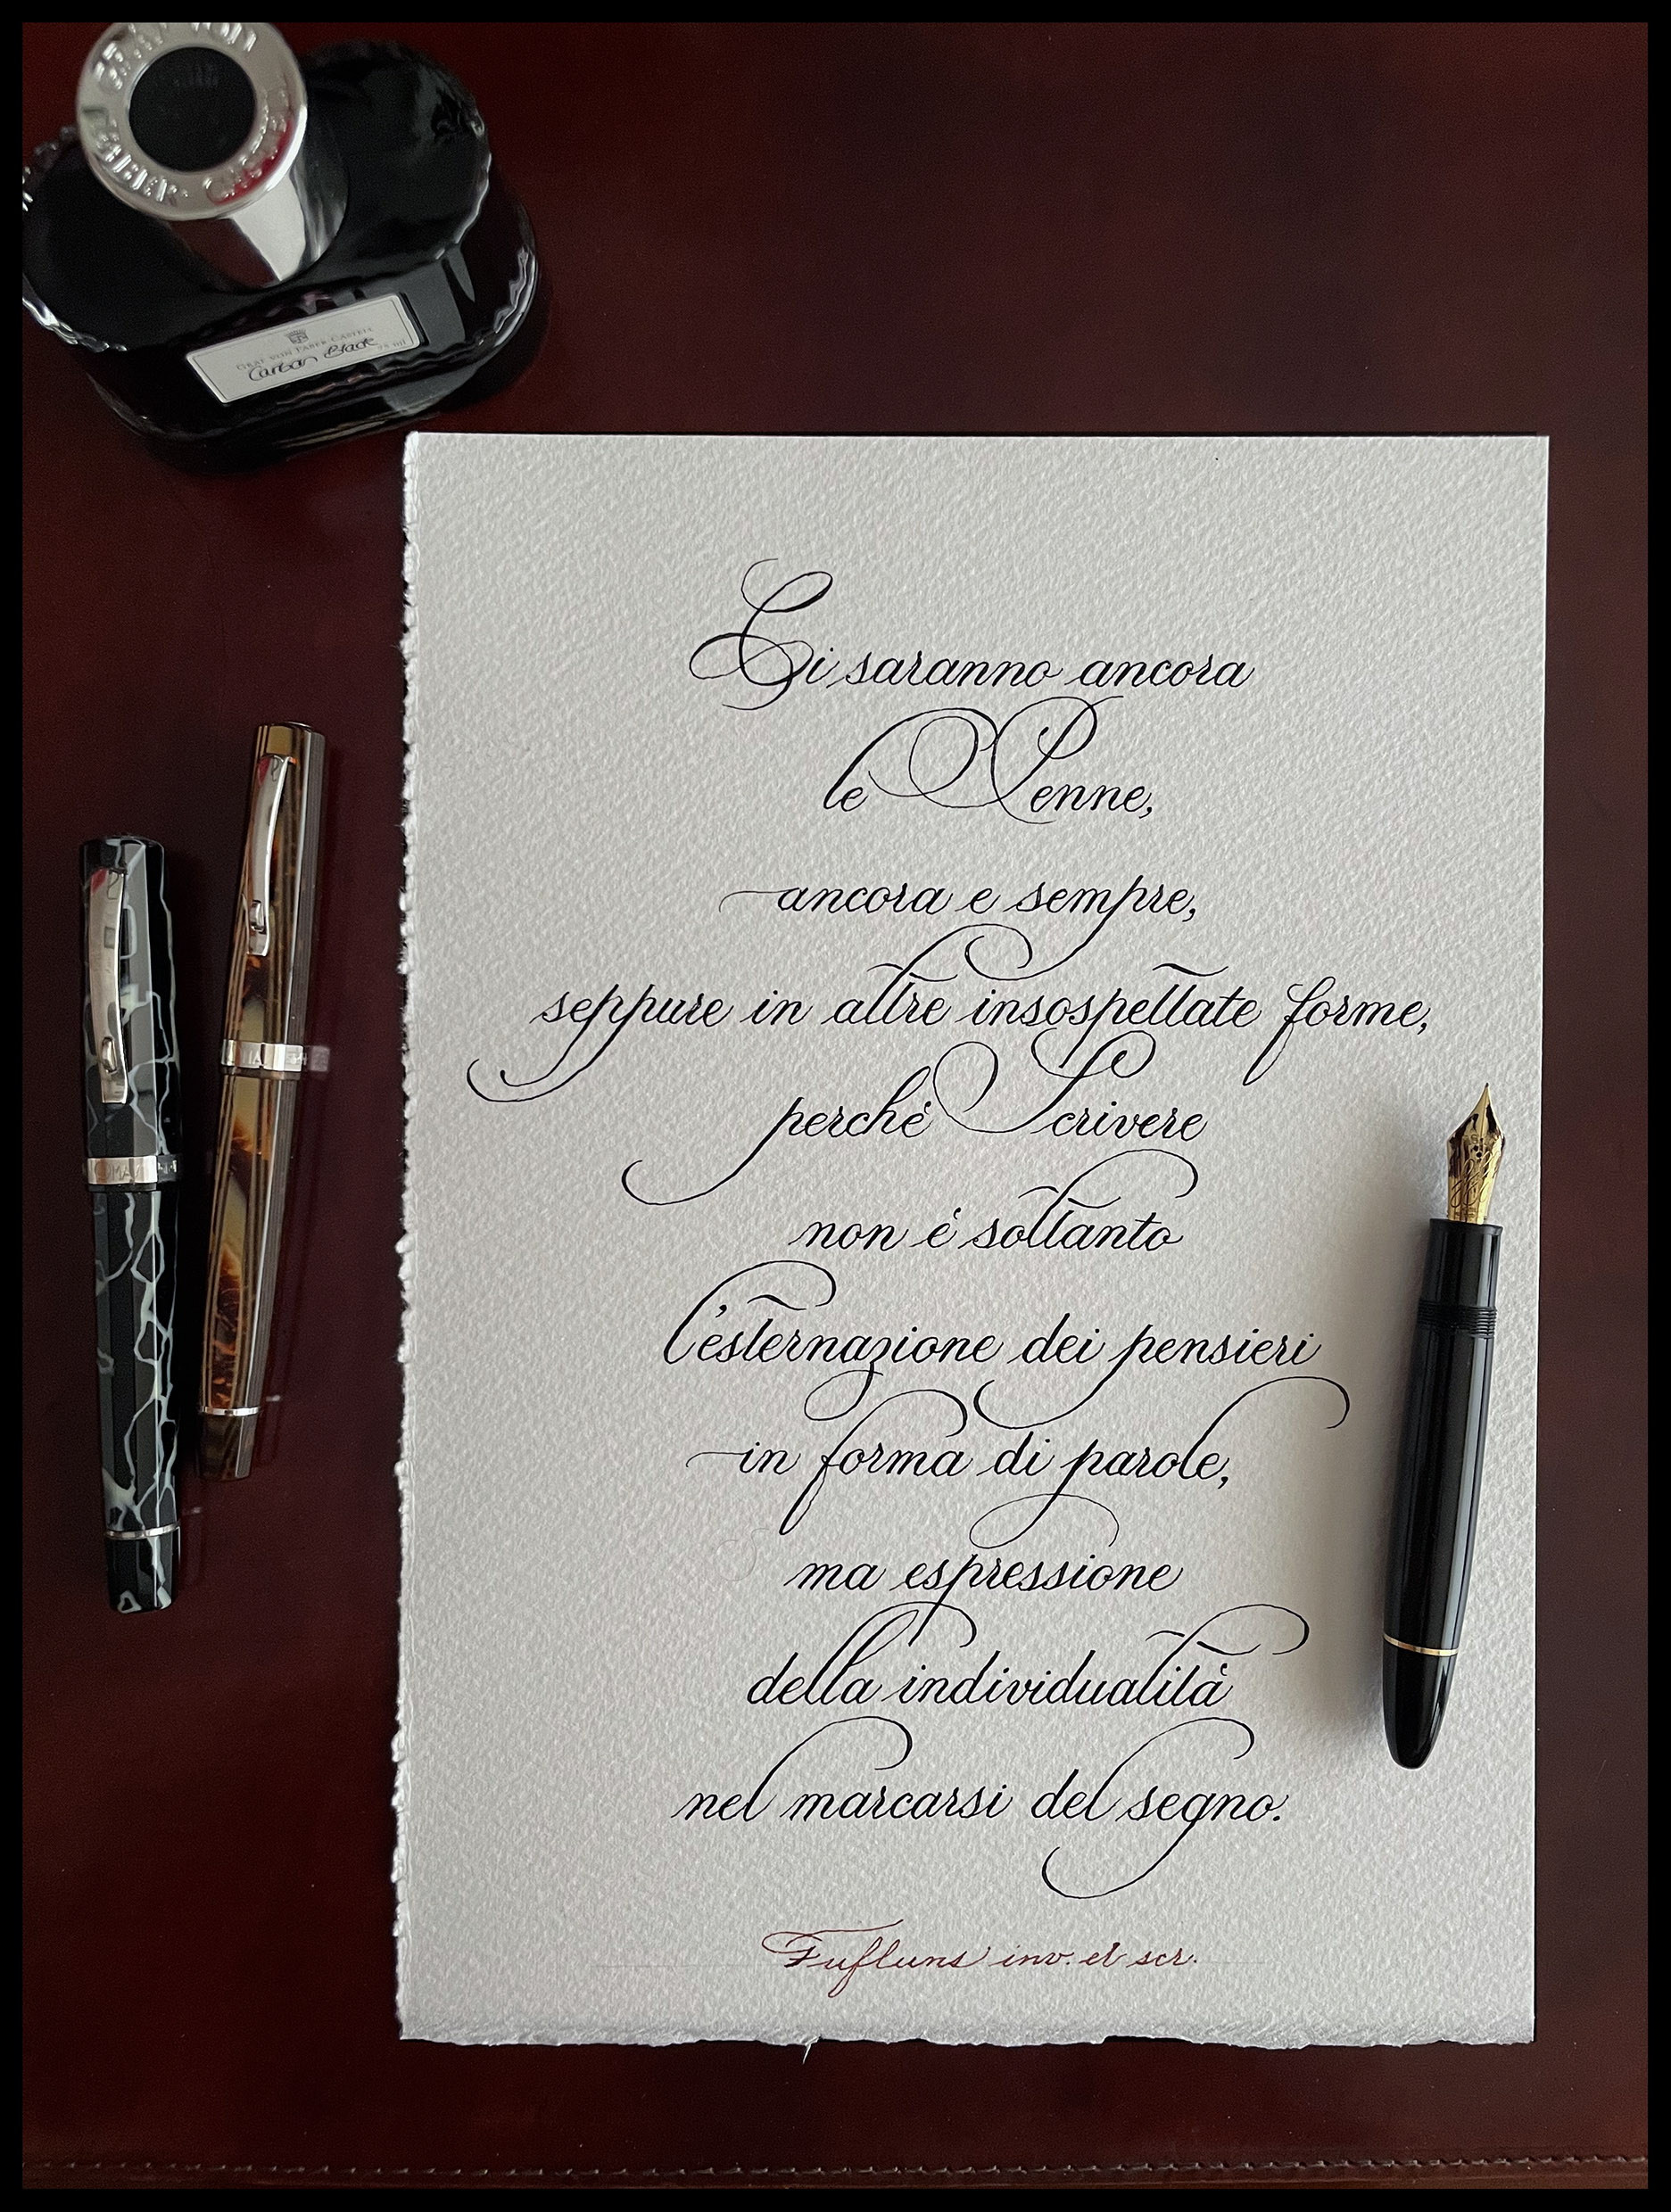 GRAF VON FABER-CASTELL
GRAF VON FABER-CASTELL
Carbon Black 75 ml
Ci saranno ancora
le Penne,
ancora e sempre,
seppure in altre insospettate forme,
perché Scrivere
non é soltanto
l'esternazione dei pensieri
in forma di parole,
ma espressione
della individualità
nel marcarsi del segno.
Fufluns inv. et scr.